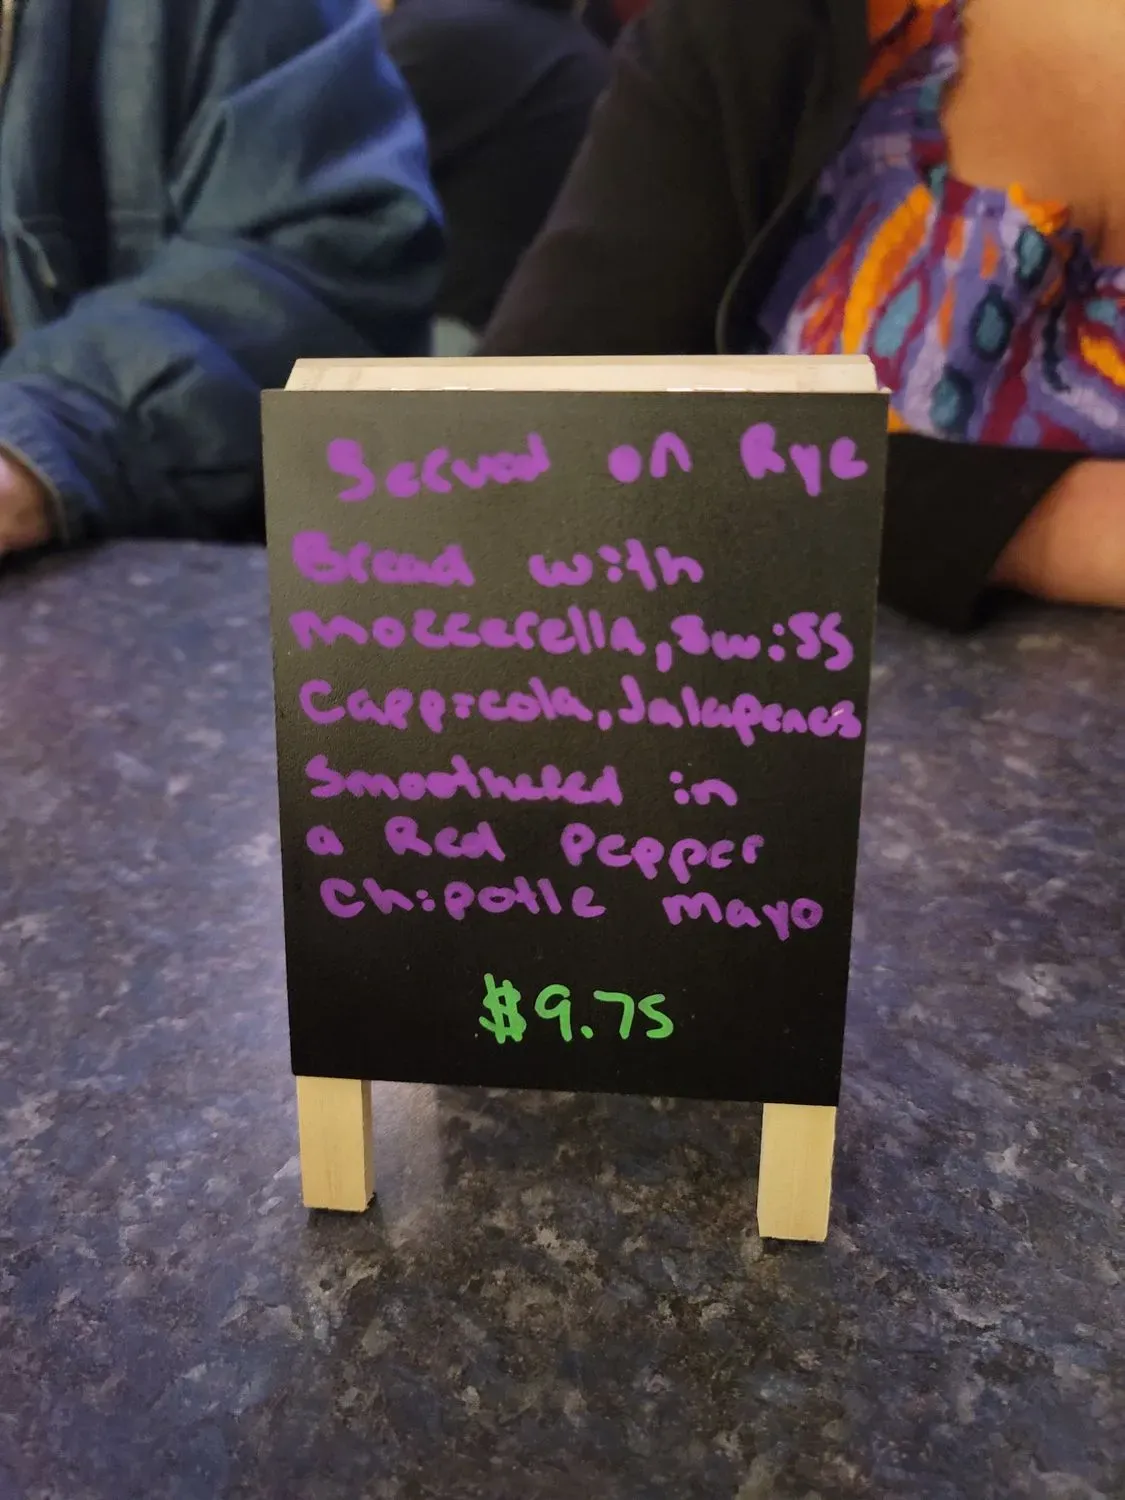 Served on Rye
Bread with
Mozzarella, Swiss
Cappicola, Jalapenos
Smoothered in
a Red Pepper
Chipotle Mayo
$9.75